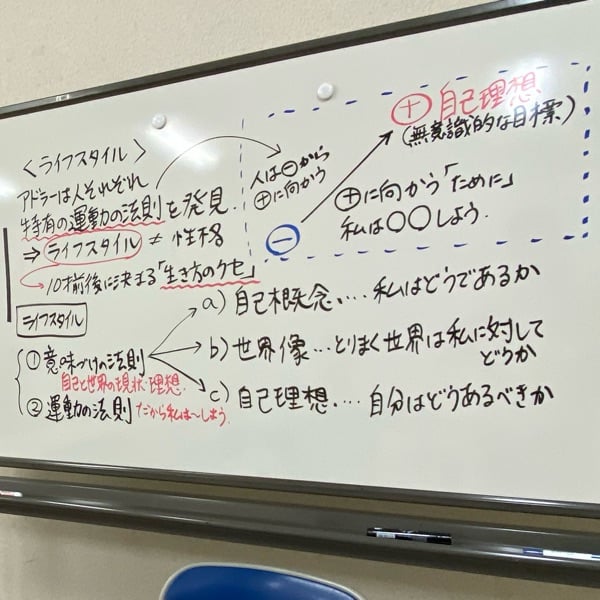 〈ライフスタイル〉
アドラーは人それぞれ
特有の運動の法則を発見.
⇒ライフスタイル ≠ 性格
10才前後に決まる「生き方のクセ」
人は㊀から
⊕に向かう
⊖
⊕ 自己理想
(無意識的な目標)
⊕に向かう「ために」
私は○○しよう.
ライフスタイル
① 意味づけの法則
自己と世界の現状・理想.
② 運動の法則 だから私は~しよう.
a) 自己概念‥‥私はどうであるか
b) 世界像…とりまく世界は私に対して
どうか
c) 自己理想‥‥自分はどうあるべきか